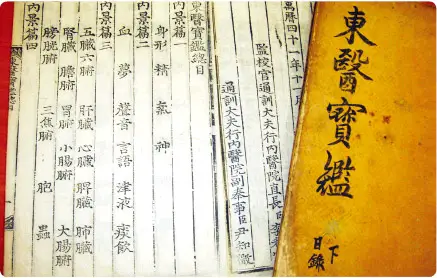 東醫寶鑑
下
目錄
萬曆四十一年十一月
監校官通訓大夫行內醫院直長
通訓大夫行內醫院副奉事臣尹知微
東醫寶鑑總目
內景篇一
身形 精 氣 神
內景篇二
血 夢 聲音 言語 津液 痰飮
內景篇三
五臟六腑 肝臟 心臟 脾臟 肺臟
腎臟 膽腑 胃腑 小腸腑 大腸腑
膀胱腑 三焦腑 胞 蟲
內景篇四